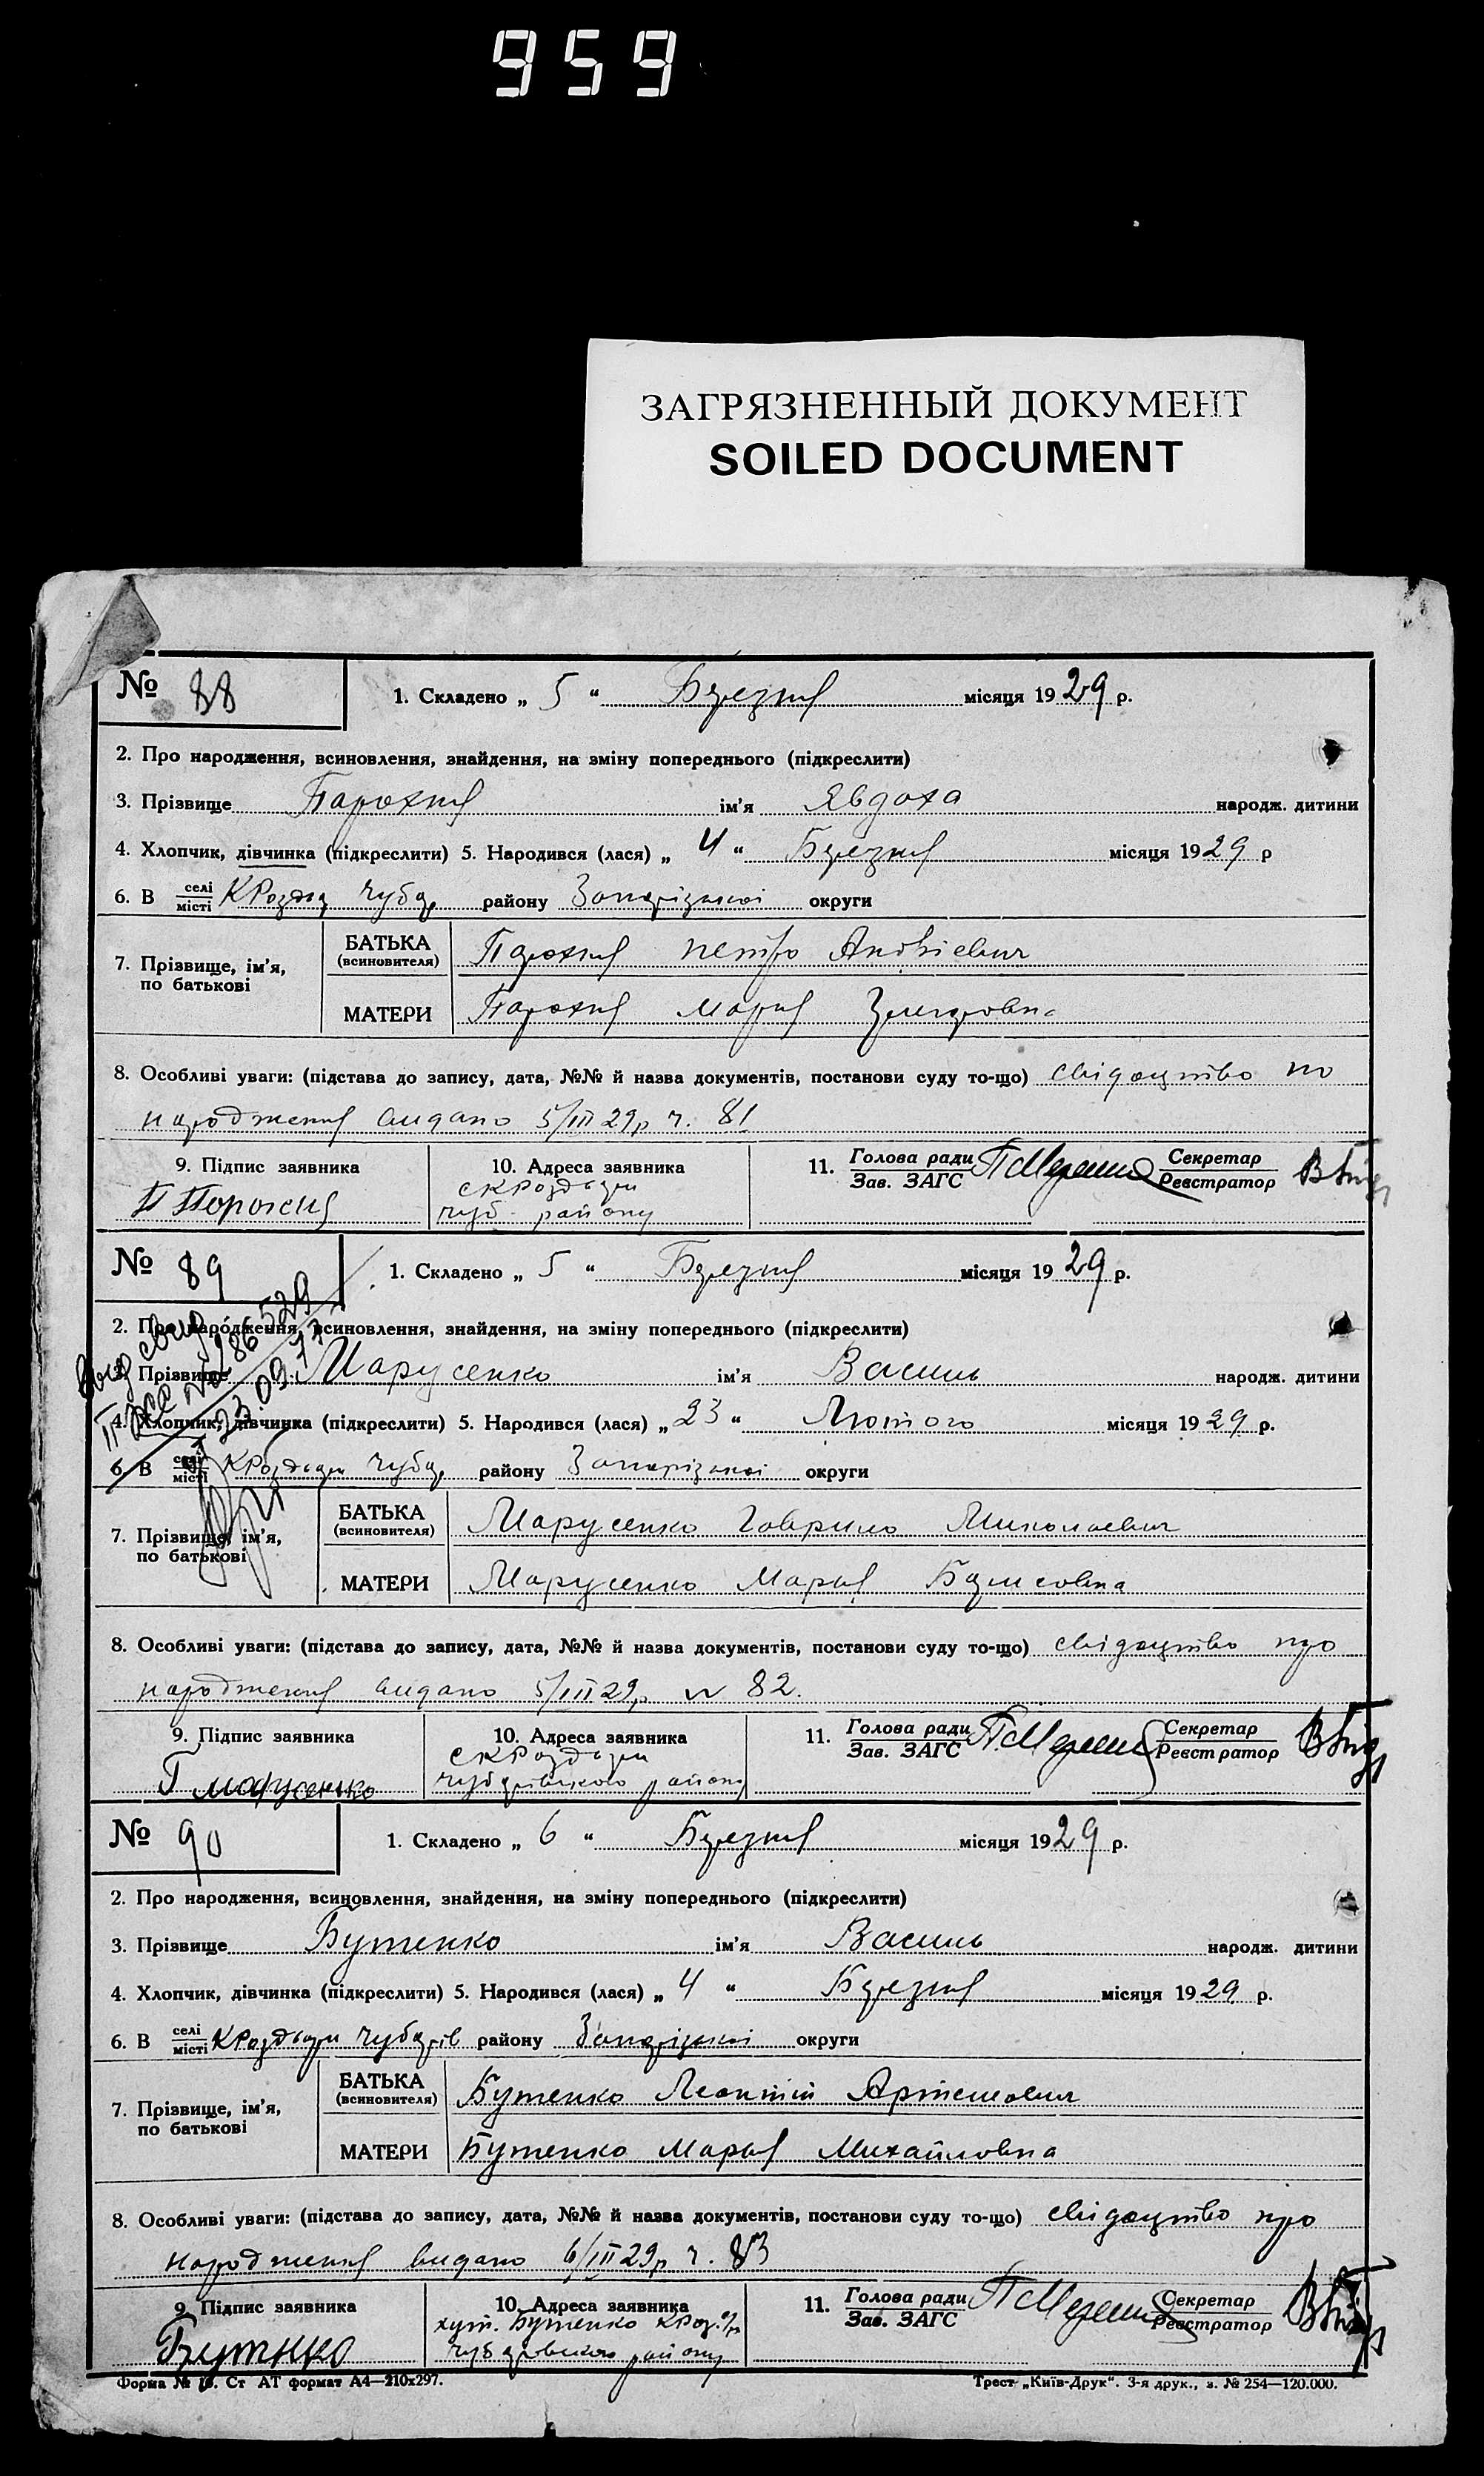 959
ЗАГРЯЗНЕННЫЙ ДОКУМЕНТ
SOILED DOCUMENT
№ 88 1. Складено „ 5 “ Березня місяця 1929 р.
2. Про народження, всиновлення, знайдення, на зміну попереднього (підкреслити)
3. Прізвище Парохня ім’я Явдоха народж. дитини
4. Хлопчик, дівчинка (підкреслити) 5. Народився (лася) „ 4 “ Березня місяця 1929 р
6. В селі місті району Запорізької округи
7. Прізвище, ім’я, по батькові
БАТЬКА (всиновителя) Парохня Петро Андрієвич
МАТЕРИ Парохня Мария
8. Особливі уваги: (підстава до запису, дата, №№ й назва документів, постанови суду то-що) свідоцтво по
народження видано 5/III 29р ч. 81
9. Підпис заявника 10. Адреса заявника 11. Голова ради Зав. ЗАГС Секретар Реєстратор
чуб. району
№ 89 1. Складено „ 5 “ Березня місяця 1929 р.
2. Про народження, всиновлення, знайдення, на зміну попереднього (підкреслити)
3. Прізвище Марусенко ім’я Василь народж. дитини
4. Хлопчик, дівчинка (підкреслити) 5. Народився (лася) „ 23 “ Лютого місяця 1929 р.
6. В селі місті району Запорізької округи
7. Прізвище, ім’я, по батькові
БАТЬКА (всиновителя) Марусенко Гаврило Миколаевич
МАТЕРИ Марусенко Мария
8. Особливі уваги: (підстава до запису, дата, №№ й назва документів, постанови суду то-що) свідоцтво про
народження видано 5/III 29р 82.
9. Підпис заявника 10. Адреса заявника 11. Голова ради Зав. ЗАГС Секретар Реєстратор
Г Марусенко району
№ 90 1. Складено „ 6 “ Березня місяця 1929 р.
2. Про народження, всиновлення, знайдення, на зміну попереднього (підкреслити)
3. Прізвище Бутенко ім’я Василь народж. дитини
4. Хлопчик, дівчинка (підкреслити) 5. Народився (лася) „ 4 “ Березня місяця 1929 р.
6. В селі місті району Запорізької округи
7. Прізвище, ім’я, по батькові
БАТЬКА (всиновителя) Бутенко Леонтій Артемович
МАТЕРИ Бутенко Мария Михайловна
8. Особливі уваги: (підстава до запису, дата, №№ й назва документів, постанови суду то-що) свідоцтво про
народження видано 6/III 29р ч. 83
9. Підпис заявника 10. Адреса заявника 11. Голова ради Зав. ЗАГС Секретар Реєстратор
хут. Бутенко
району
Ст АТ формат А4—210х297. Трест „Київ-Друк“. 3-я друк., з. № 254—120.000.